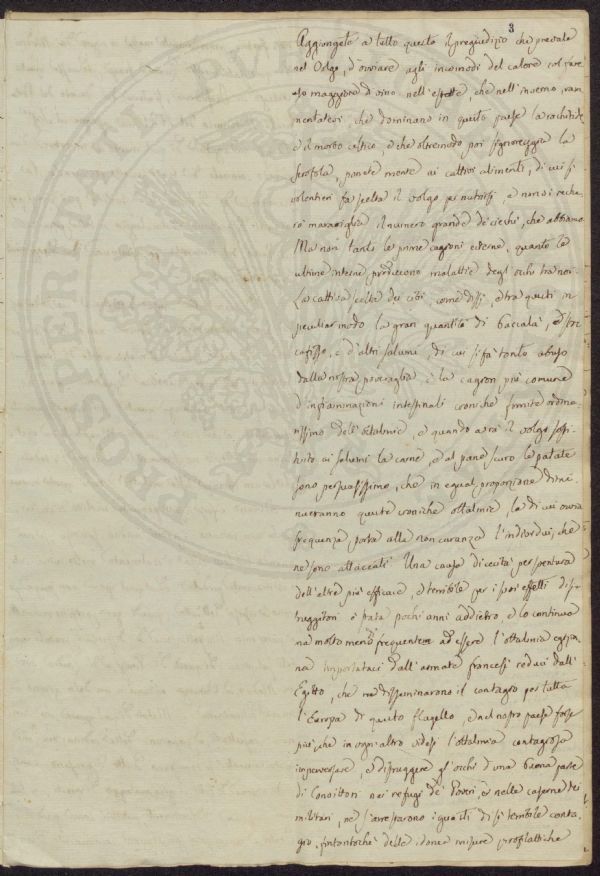 3
Aggiongete a tutto questo il pregiudizio che prevale
nel Volgo, d'ovviare agli incomodi del calore col fare
uso maggiore di vino nell'estate, che nell'inverno, ram
mentatevi, che dominano in questo paese la rachitide
e il morbo celtico, e che oltremodo poi signoreggia la
scrofola, ponete mente ai cattivi alimenti, di cui si
volentieri fa scelta il volgo per nutrirsi, e non vi reche
rà maraviglia il numero grande di ciechi, che abbiamo.
Ma non tanto le prime cagioni esterne, quanto le
ultime interne producono malattie degl'occhi tra noi.
La cattiva scelta dei cibi come dissi, e tra questi in
peculiar modo la gran quantità di baccalà, e stoc
cafisso, e d'altri salumi, di cui si fà tanto abuso
dalla nostra poveraglia, è la cagion più comune
d'infiammazioni intestinali croniche
dell'oftalmie, e quando avrà il volgo sosti
tuito ai salumi la carne, e al pane scuro le patate
sono persuasissimo, che in egual proporzione dimi
nueranno queste croniche oftalmie, la di cui ovvia
frequenza porta alla non curanza l'individui, che
ne sono attaccati. Una causa di cecità per sventura
dell'altre più efficace, e terribile per i suoi effetti dis
truggitori è stata pochi anni addietro, e lo continua
ma molto meno frequentem ad essere l'oftalmia egizia
na importataci dall'armate francesi reduci dall'
Egitto, che ne disseminarono il contagio per tutta
l'Europa di questo flagello, e nel nostro paese forse
più, che in ogni altro videsi l'oftalmia contagiosa
imperversare, e distruggere gl'occhi d'una buona parte
di Coscritti nei refugi de' Poveri, e nelle caserne dei
militari, ne s'arrestarono i guasti di sì terribile conta
gio, fintantochè delle idonee misure profilattiche